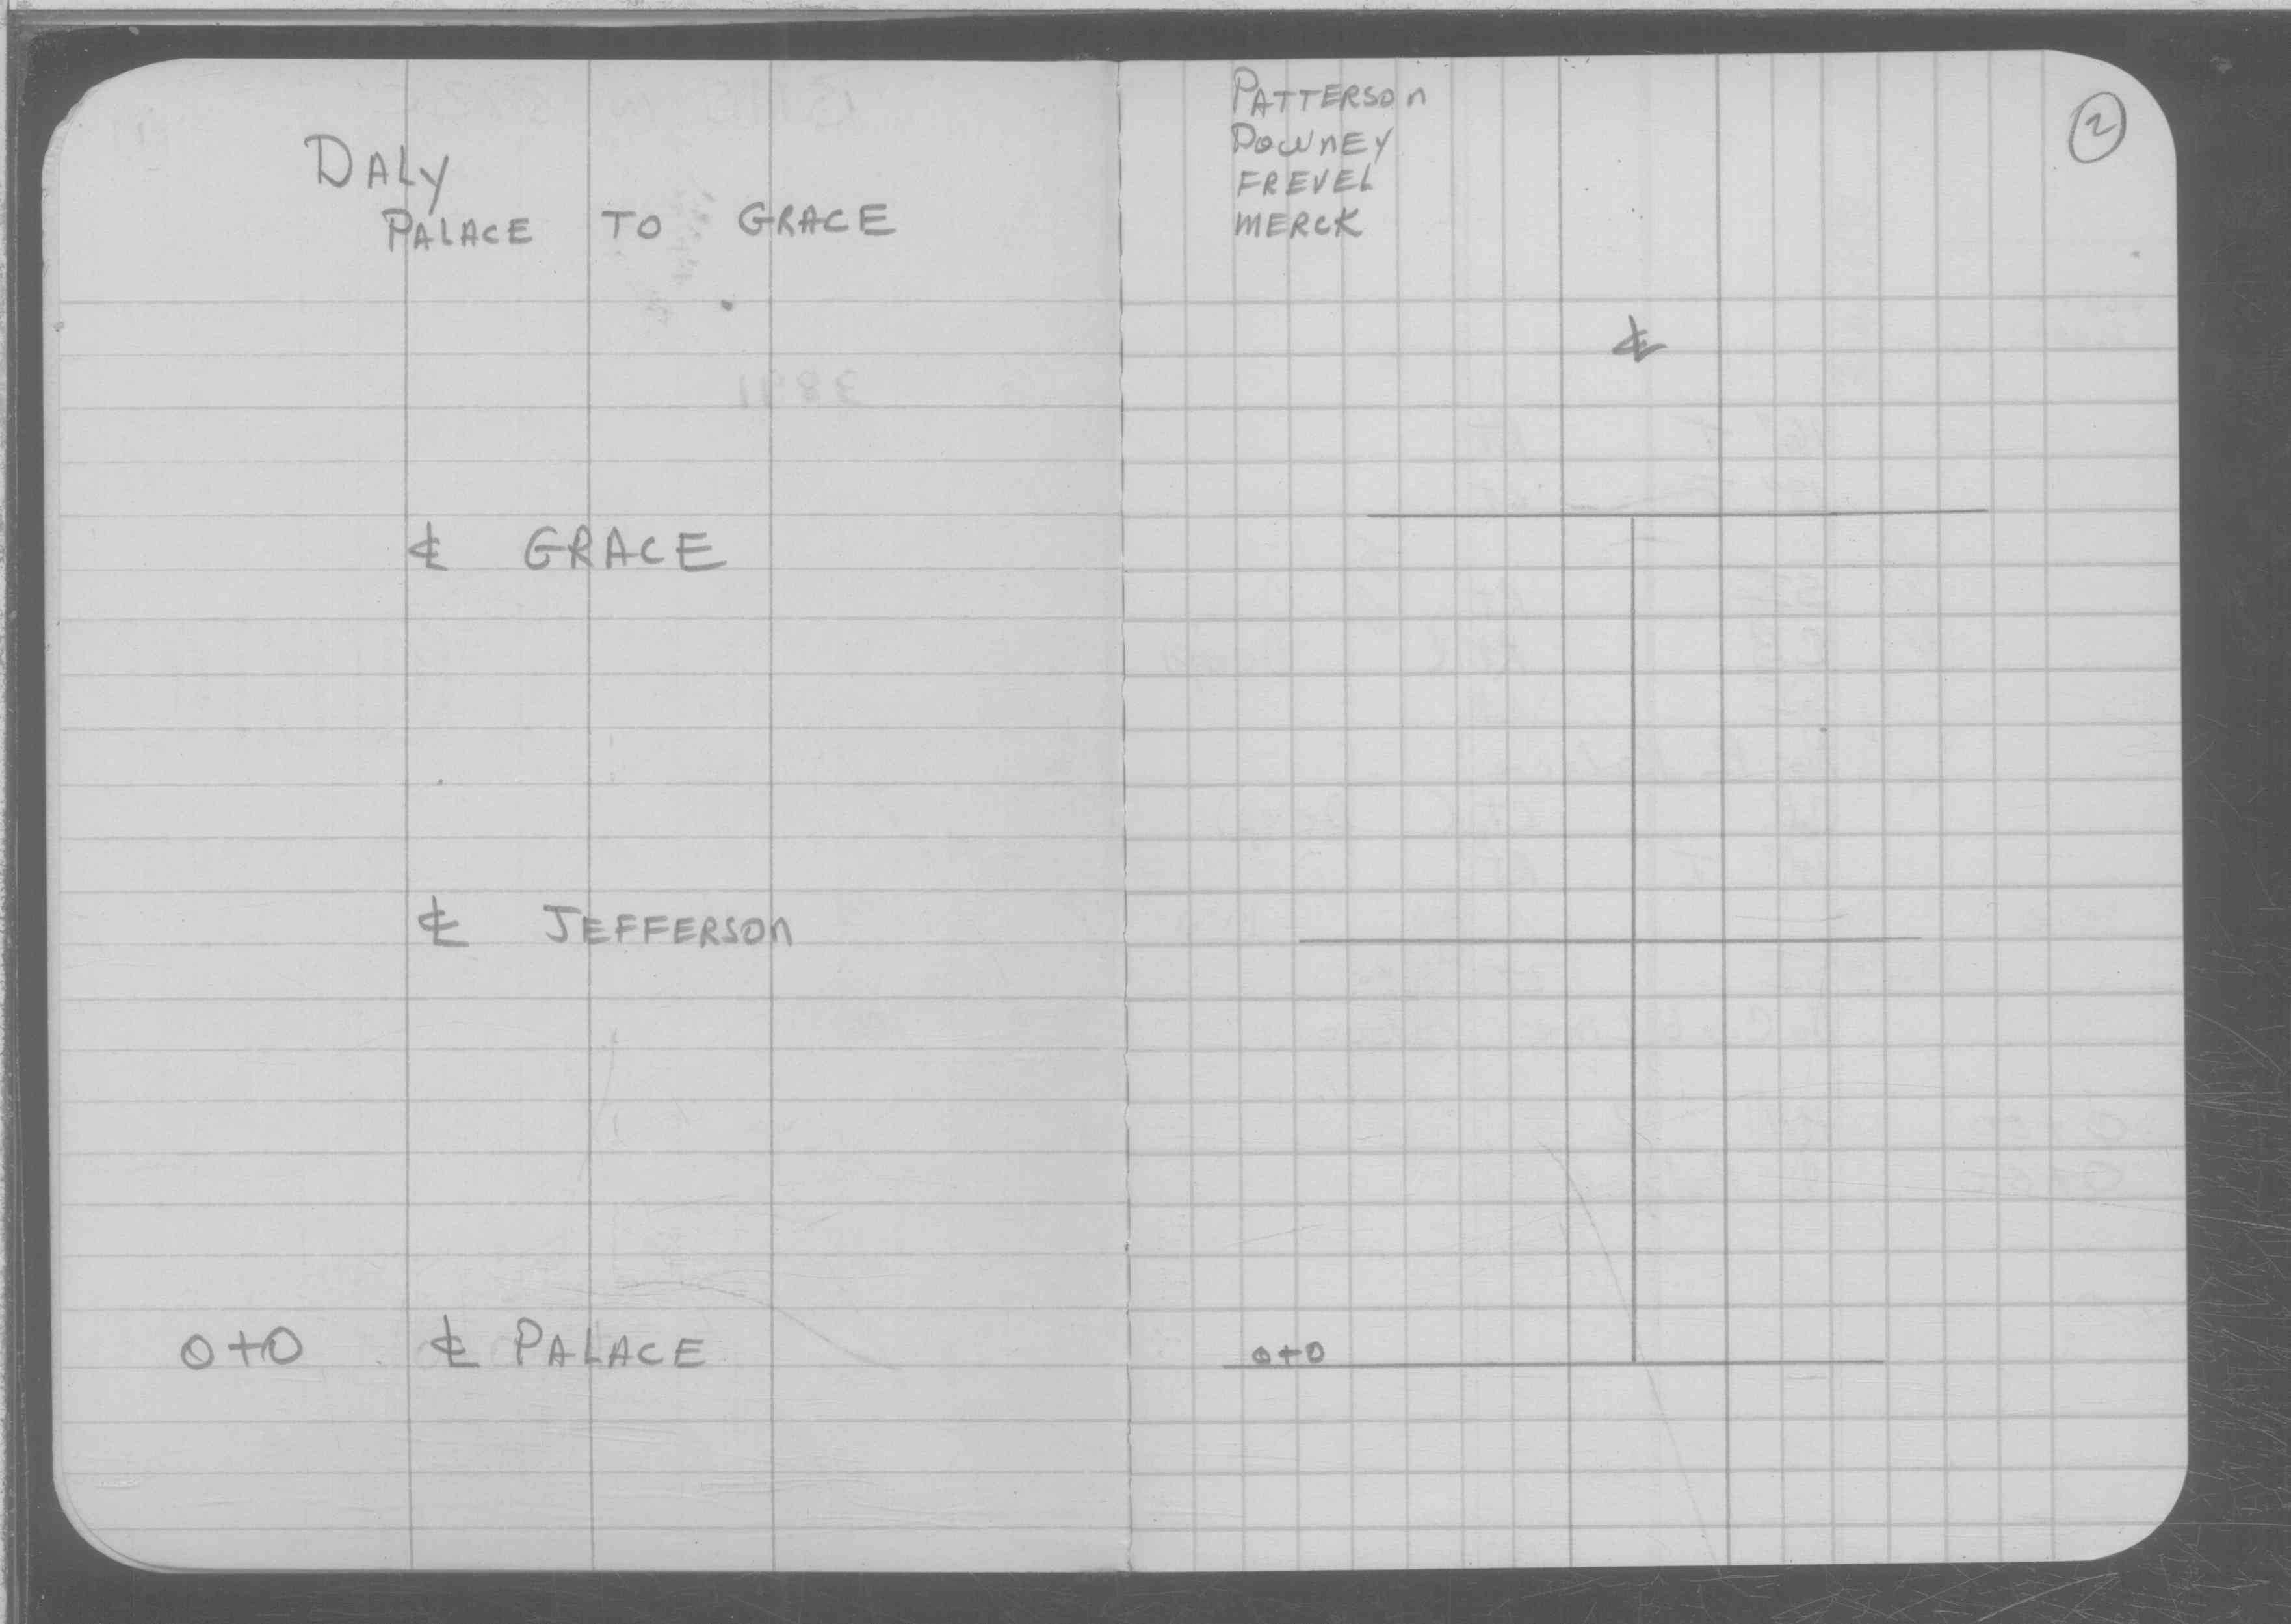 DALY
PALACE TO GRACE
℄ GRACE
℄ JEFFERSON
0+0 ℄ PALACE
PATTERSON
DOWNEY
FREVEL
MERCK
2
℄
0+0